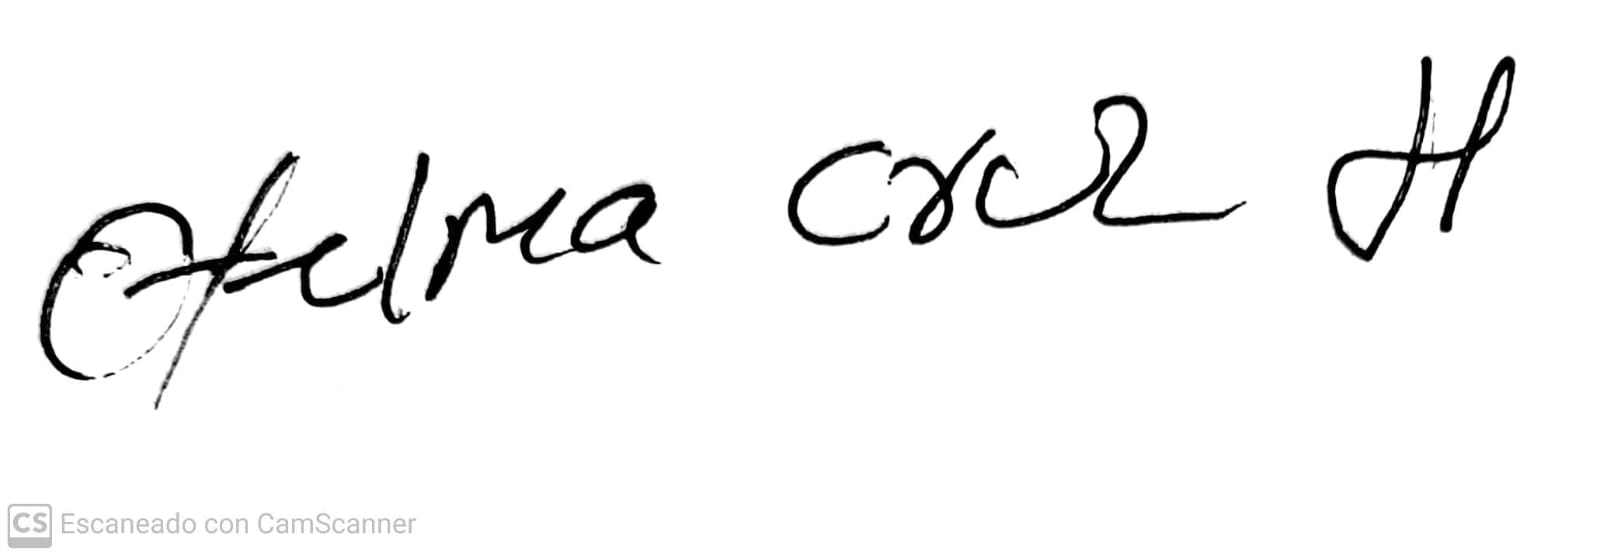 Otelma Cruz H
CS Escaneado con CamScanner